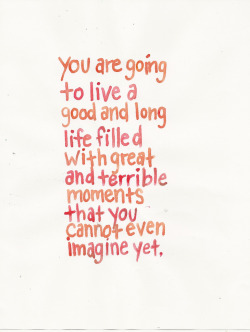 you are going
to live a
good and long
life filled
with great
and terrible
moments
that you
cannot even
imagine yet.